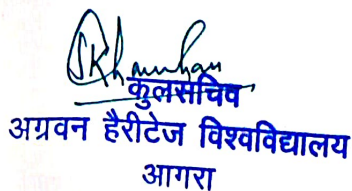 कुलसचिव
अग्रवन हैरीटेज विश्वविद्यालय
आगरा